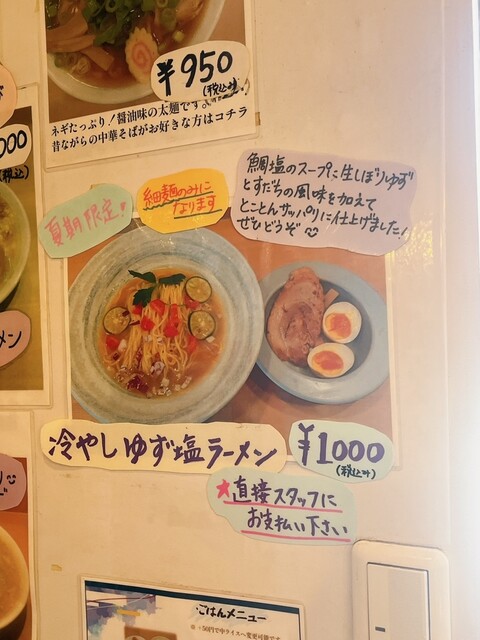 ¥950
(税込み)
ネギたっぷり！醤油味の太麺です
昔ながらの中華そばがお好きな方はコチラ
000
(税込)
夏期限定！
細麺のみに
なります
鯛塩のスープに生しぼりゆず
とすだちの風味を加えて
とことんサッパリに仕上げました！
ぜひどうぞ
メン
冷やしゆず塩ラーメン
¥1000
(税込み)
★直接スタッフに
お支払い下さい
ごはんメニュー
※+50円で中ライスへ変更可能です